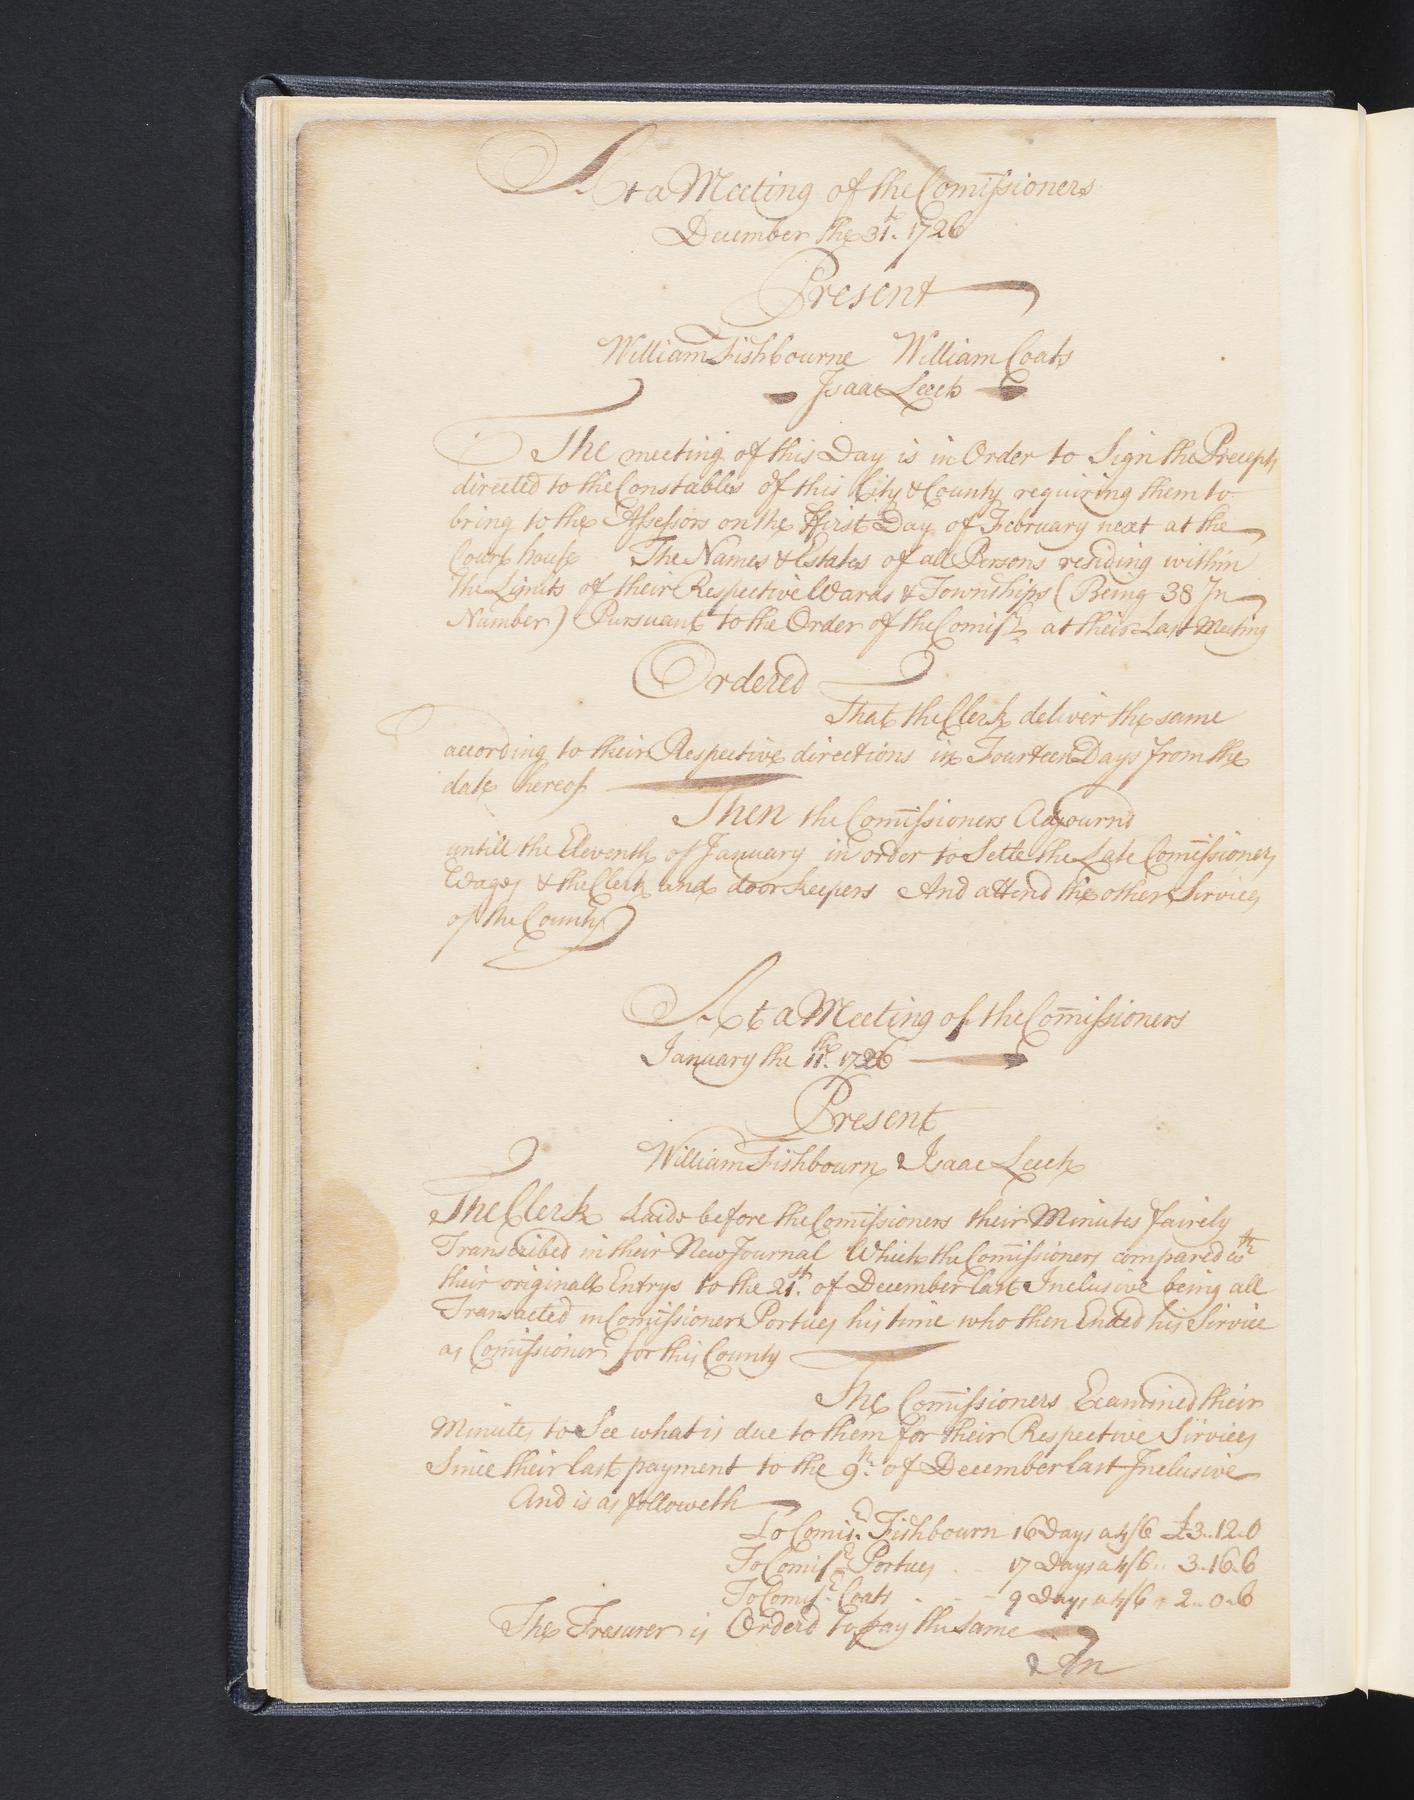 At a Meeting of the Comissioners
December the 31t. 1726
Present
William Fishbourne William Coats
Isaac Leech
The meeting of this Day is in Order to Sign the Precepts
directed to the Constables of this City & County requiring them to
bring to the Assessors on the ffirst Day of February next at the
Court house The Names & Estates of all Persons residing within
the Limits of their Respective Wards & Townships (Being 38 In
Number) Pursuant to the Order of the Comisrs at their Last Meeting
Ordered
That the Clerk deliver the same
according to their Respective directions in Fourteen Days from the
date hereof
Then the Comissioners Adjournd
untill the Eleventh of January in order to Setle the Late Comissioners
Wages & the Clerk and doorkeepers And attend the other Services
of the County
At a Meeting of the Comissioners
January the 11th. 1726
Present
William Fishbourn & Isaac Leech
The Clerk Laids before the Comissioners their Minutes fairely
Transcribed in their New Journal Which the Comissioners compared wth
their originall Entrys to the 21st. of December last Inclusive being all
Transacted in Comissioner Portues his time who then Ended his Service
as Comissioner for this County
The Comissioners Examined their
Minutes to See what is due to them for their Respective Services
Since their last payment to the 9th. of December last Inclusive
And is as followeth
To Comisr. Fishbourn 16 Days a 4/6 £3..12..0
To Comisr. Portues 17 Days a 4/6 .. 3..16..6
To Comisr. Coats 9 Days a 4/6 .. 2..0..6
The Tresurer is Orderd to pay the same
& In